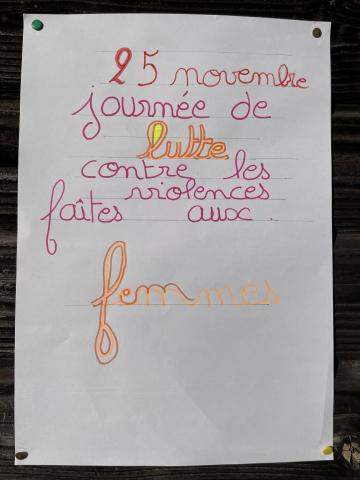 25 novembre
journée de
lutte
contre les
violences
faîtes aux.
femmes